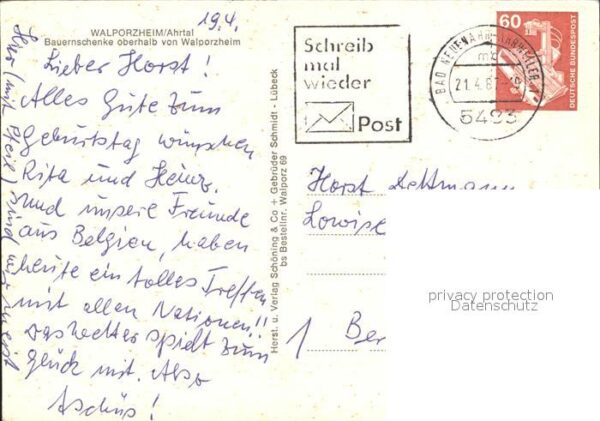 WALPORZHEIM/Ahrtal
Bauernschenke oberhalb von Walporzheim
19.4.
Lieber Horst!
Alles Gute zum
Geburtstag wünschen
Rita und Heinz.
Sind unsere Freunde
aus Belgien, haben
heute ein tolles Treffen
mit allen Nationen!!
Das Wetter spielt zum
Glück mit. Also
Tschüs!
Hier (mit Pfeil) sind wir
Herst. u. Verlag Schöning & Co + Gebrüder Schmidt - Lübeck
bs Bestellnr. Walporz 69
Schreib
mal
wieder
Post
BAD NEUENAHR-AHRWEILER
mc
21.4.8
5483
60
DEUTSCHE BUNDESPOST
Horst
Lowise
1 Ber
privacy protection
Datenschutz